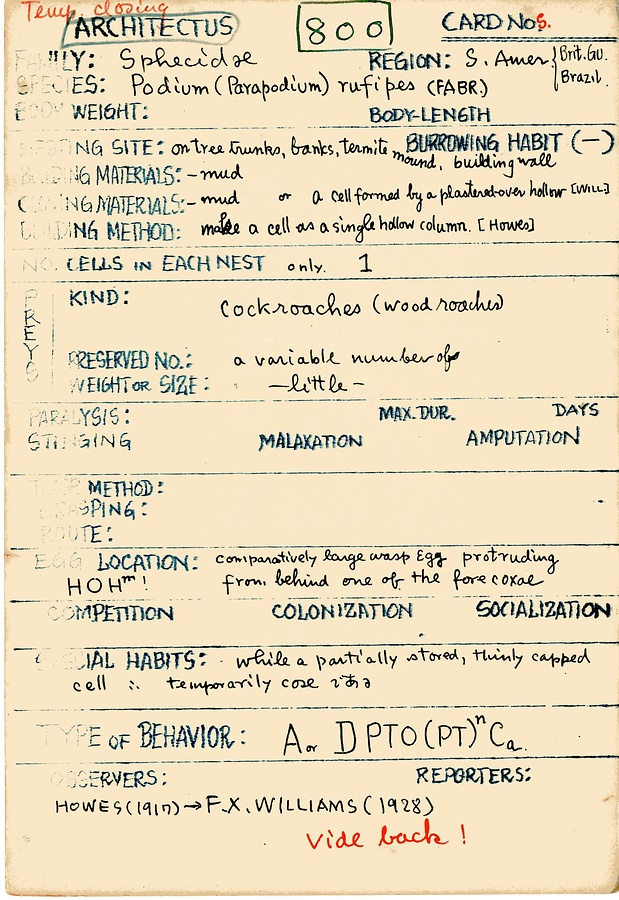 Temp. closing
ARCHITECTUS 800 CARD NoS.
FAMILY: Sphecidae REGION: S. Amer { Brit. Gu. Brazil.
SPECIES: Podium (Parapodium) rufipes (FABR.)
BODY WEIGHT: BODY-LENGTH
NESTING SITE: on tree trunks, banks, termite mound, building wall BURROWING HABIT (-)
BUILDING MATERIALS: - mud
CLOSING MATERIALS: - mud or a cell formed by a plastered-over hollow [WILL]
BUILDING METHOD: make a cell as a single hollow column. [Howes]
NO. CELLS IN EACH NEST only. 1
PREYS
KIND: Cockroaches (wood roaches)
PRESERVED NO.: a variable number of
WEIGHT OR SIZE: - little -
PARALYSIS: MAX. DUR. DAYS
STINGING MALAXATION AMPUTATION
METHOD:
GRASPING:
ROUTE:
EGG LOCATION: comparatively large wasp Egg protruding
HOHm! from behind one of the fore coxae
COMPETITION COLONIZATION SOCIALIZATION
SPECIAL HABITS: while a partially stored, thinly capped
cell ∴ temporarily cose である
TYPE OF BEHAVIOR: A or D PTO(PT)ⁿCa.
OBSERVERS: REPORTERS:
HOWES (1917) → F. X. WILLIAMS (1928)
Vide back!